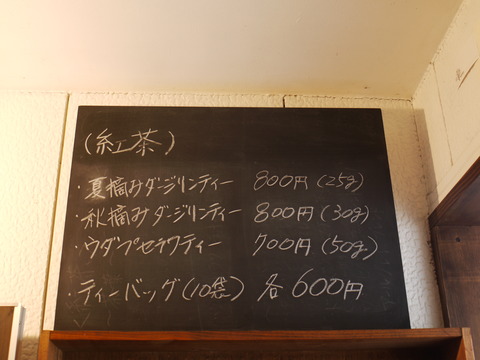 (紅茶)
・夏摘みダージリンティー 800円(25g)
・秋摘みダージリンティー 800円(30g)
・ウダプセラワティー 700円(50g)
・ティーバッグ(10袋) 各600円